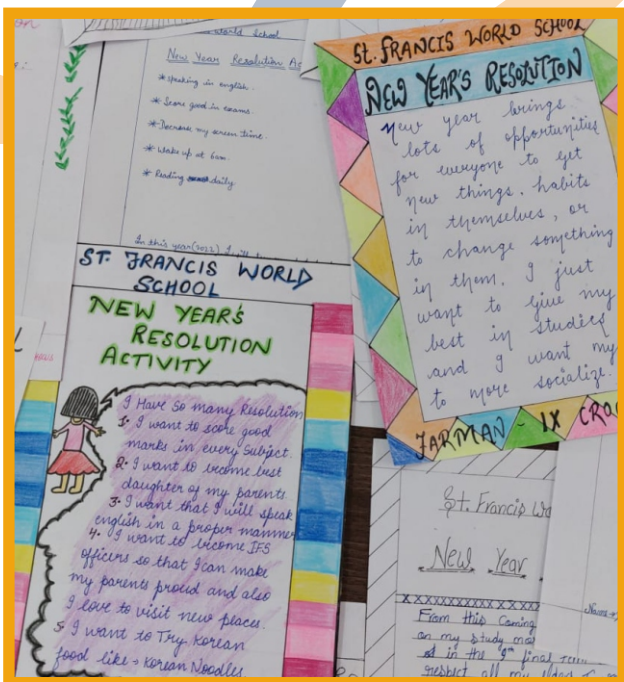 world School
New Year Resolution
* speaking in english.
* Score good in exams.
* Decrease my screen time.
* Wake up at 6am.
* Reading daily
In this year (2022) I will
ST. FRANCIS WORLD SCHOOL
NEW YEAR'S RESOLUTION
New year brings
lots of opportunities
for everyone to get
new things, habits
in themselves, or
to change something
in them. I just
want to give my
best in studies
and I want my
to more socialize.
JARMAN - IX
ST. FRANCIS WORLD
SCHOOL
NEW YEAR'S
RESOLUTION
ACTIVITY
I Have So many Resolution
1. I want to score good
marks in every subject.
2. I want to become best
daughter of my parents.
3. I want that I will speak
english in a proper manner
4. I want to become IFS
officers so that I can make
my parents proud and also
I love to visit new places.
5. I want to Try Korean
food like → Korean Noodles
St. Francis
New Year
From this Coming
on my study
in the 9th final
respect all my
Name